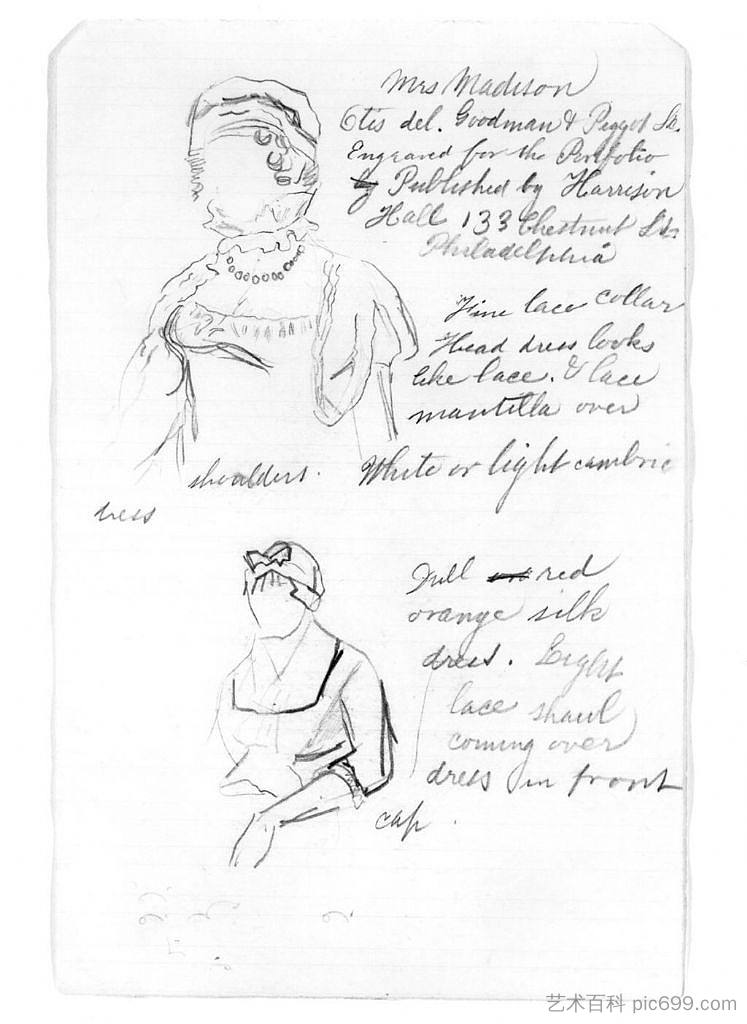 Mrs Madison
Otis del. Goodman & Piggot Sc.
Engraved for the Portfolio
by Published by Harrison
Hall 133 Chestnut St.
Philadelphia
Fine lace collar
Head dress looks
like lace. & lace
mantilla over
shoulders. White or light cambric
dress
Dull red
orange silk
dress. Light
lace shawl
coming over
dress in front
cap.
艺术百科 pic699.com